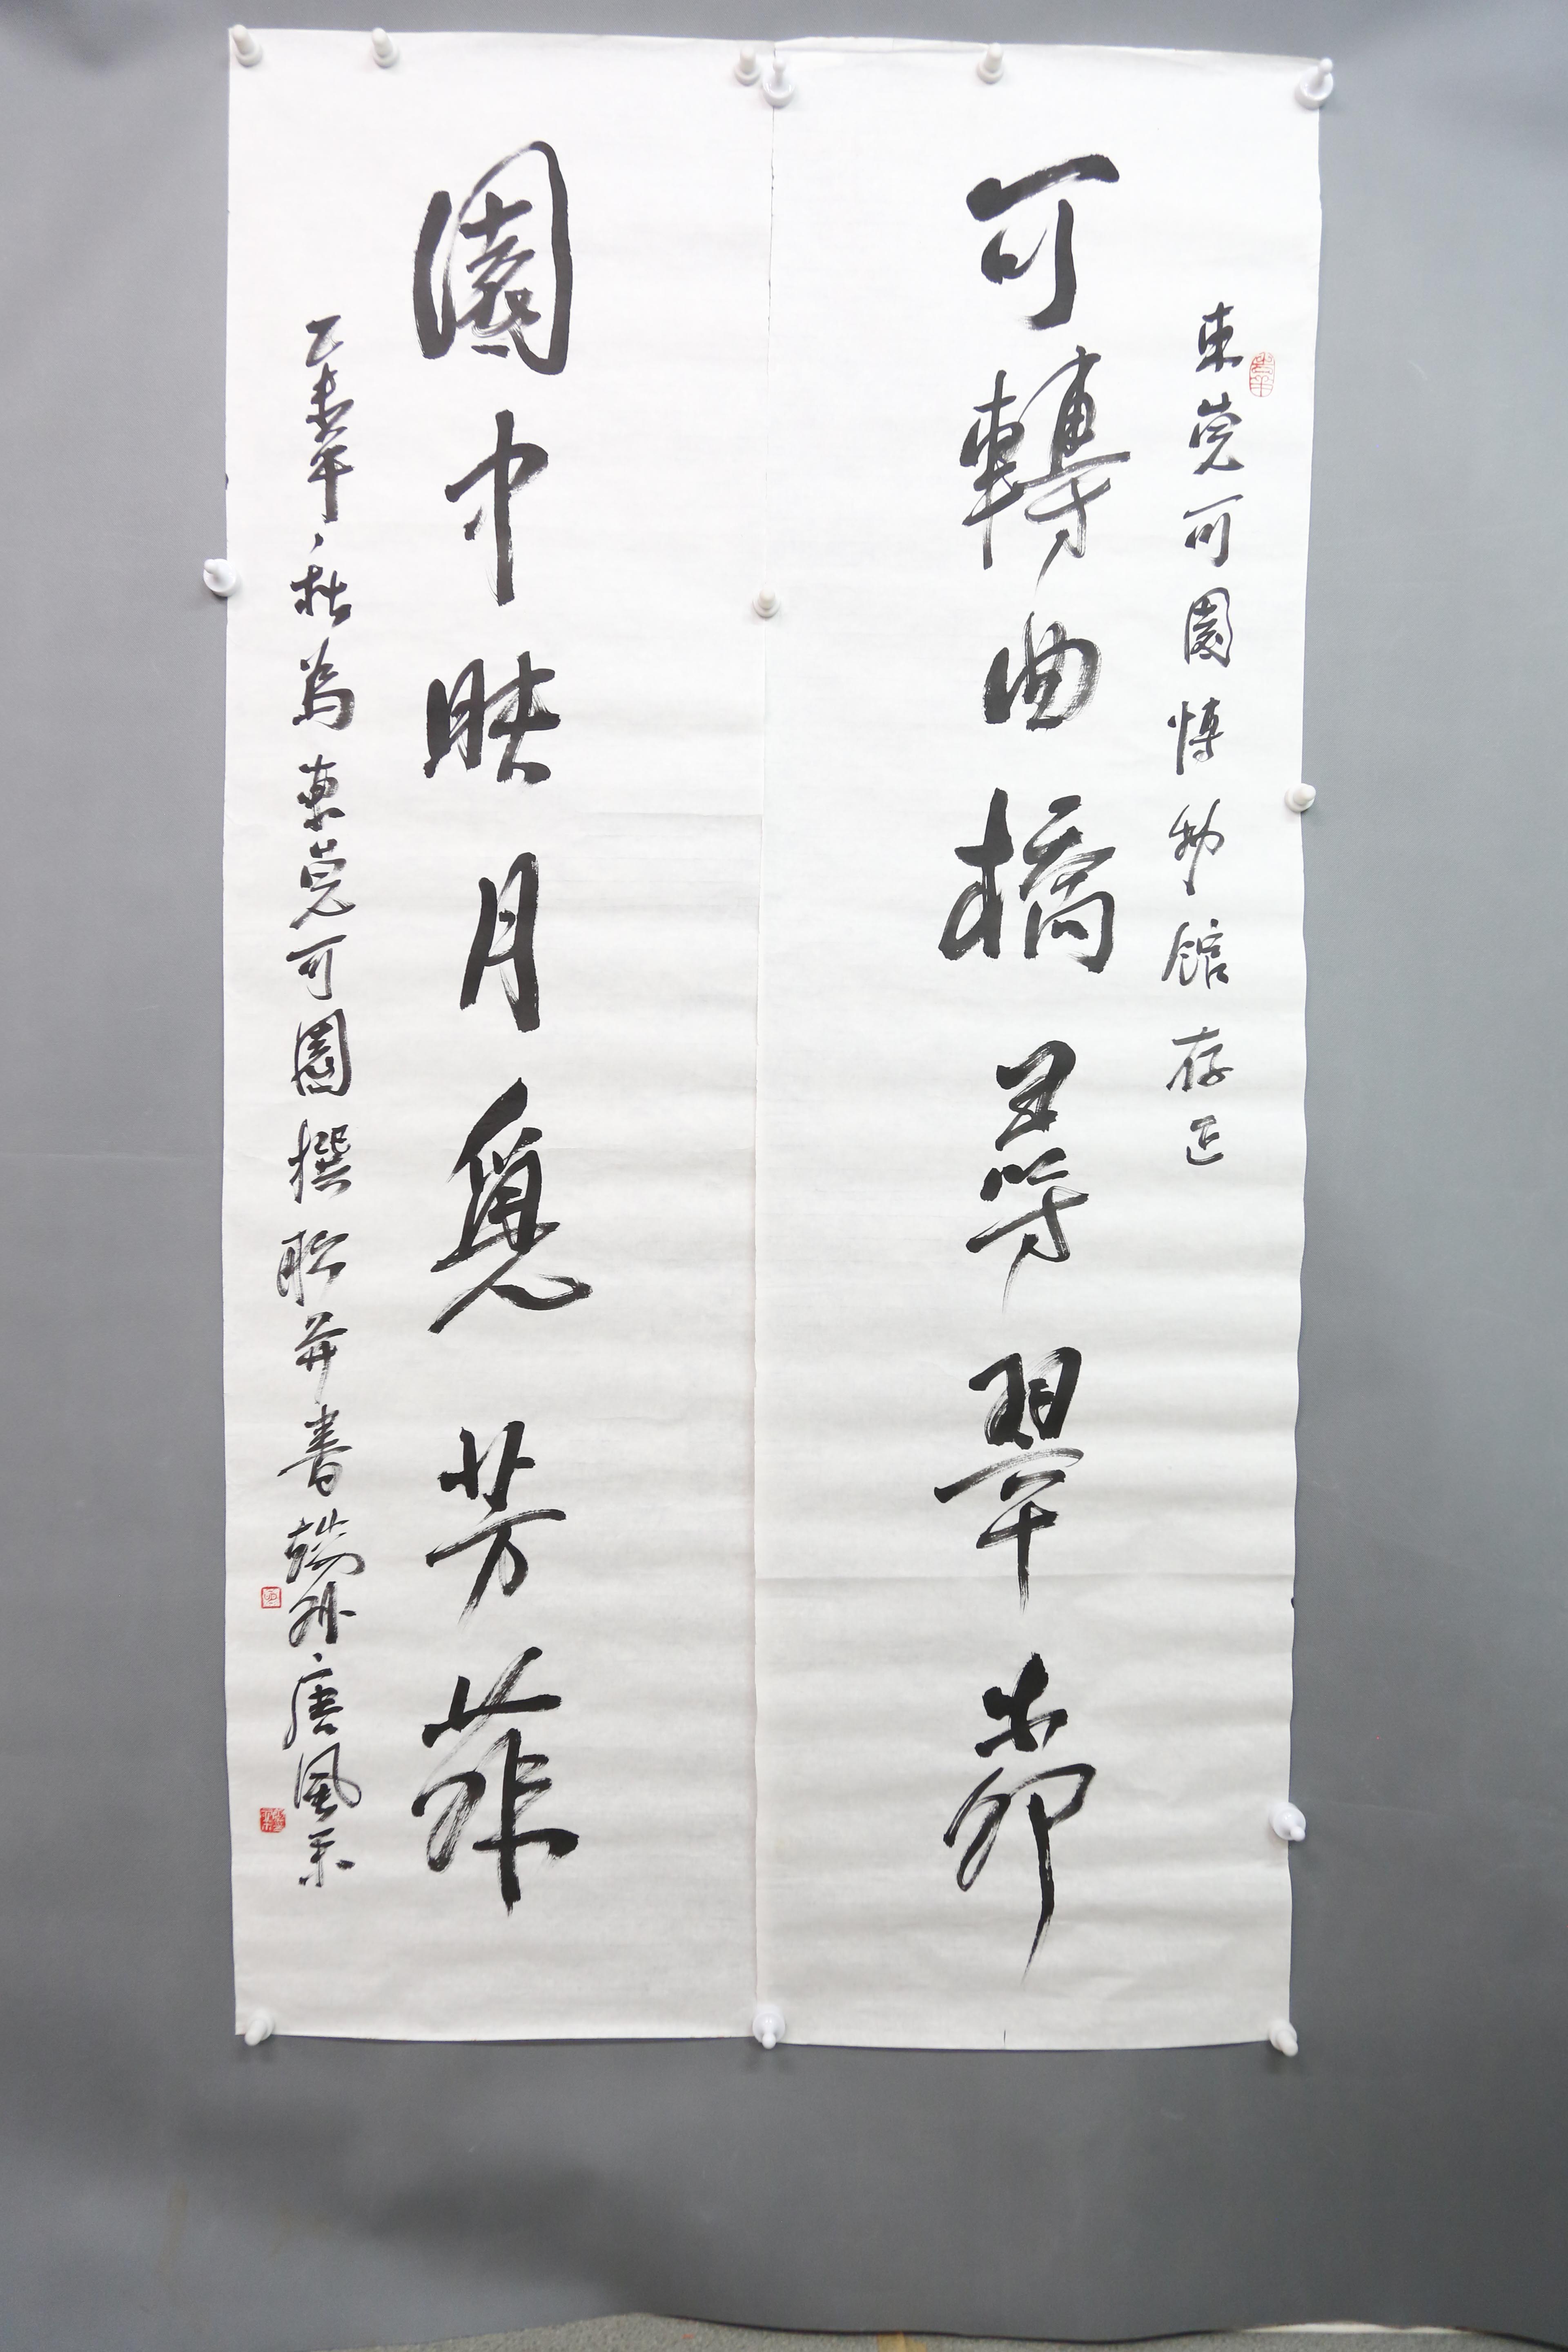 東莞可園博物館存正
可轉曲橋尋翠茆
園中映月覓芳菲
乙未年秋為東莞可園撰聯并書 唐風